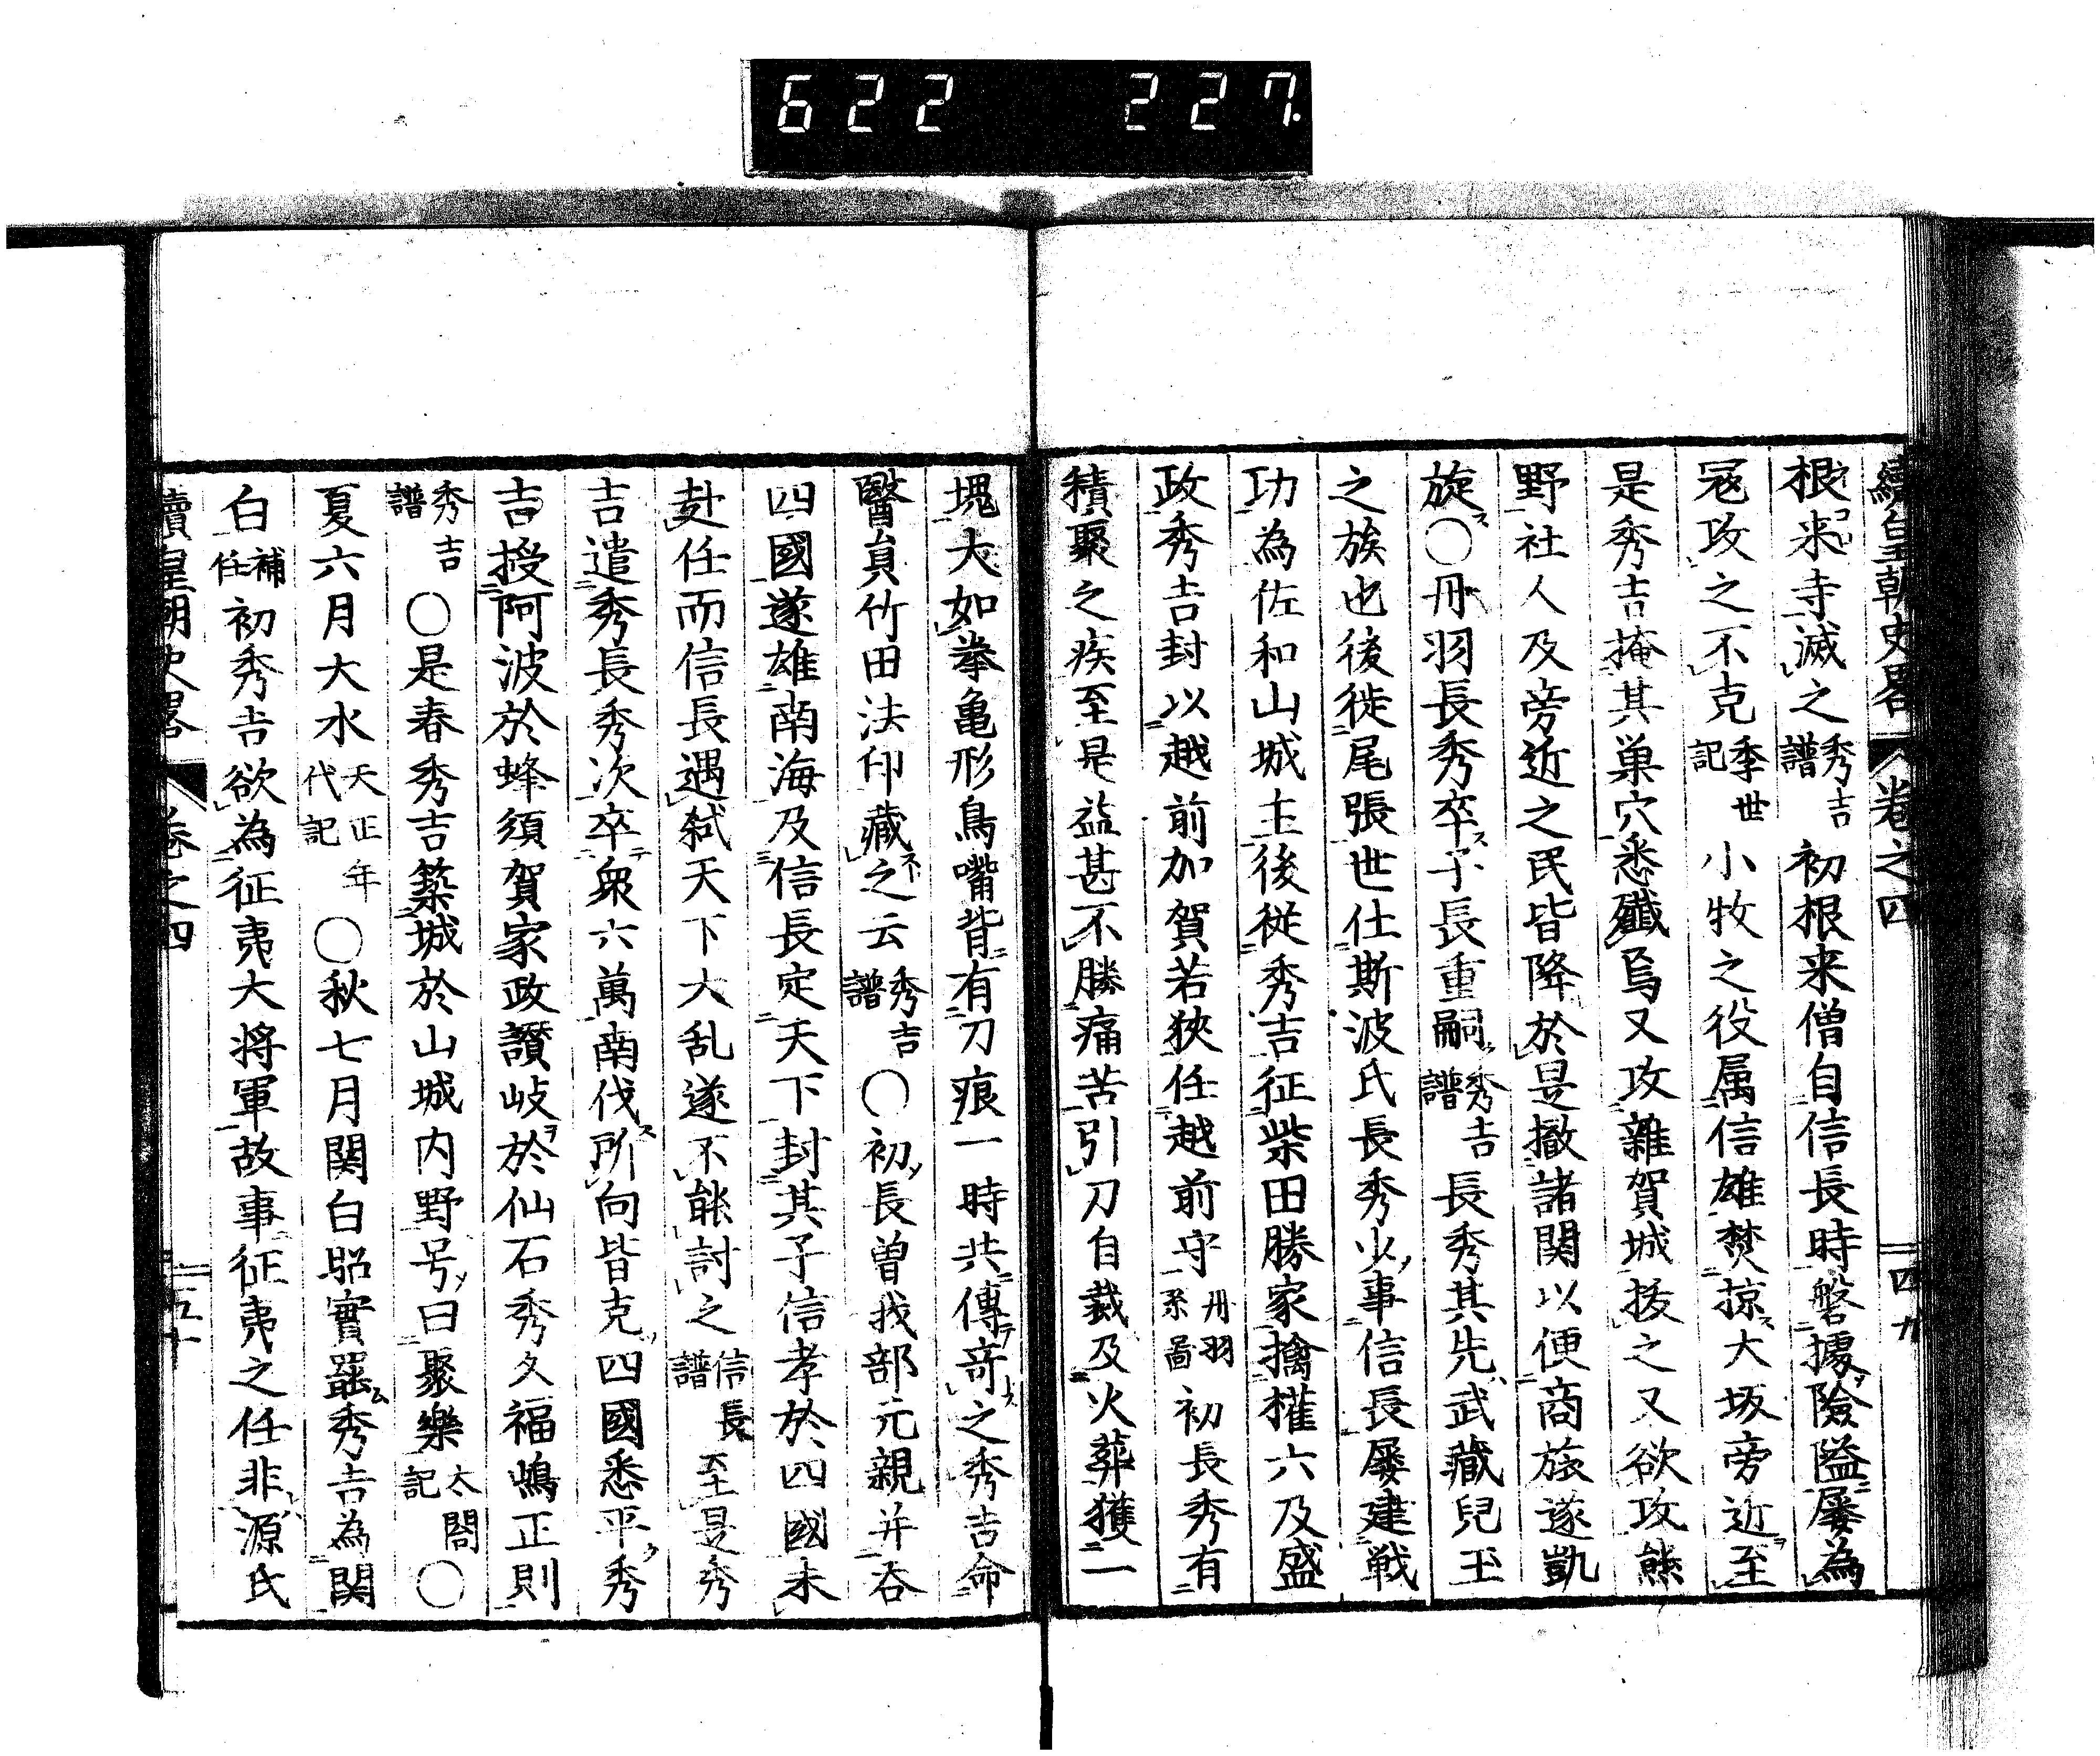 622 227
續皇朝史畧 卷之四 四九
根来寺滅之秀吉譜初根来僧自信長時磐據險隘屡為
冦攻之不克季世記小牧之役属信雄焚掠大坂旁近至
是秀吉掩其巣穴悉殱焉又攻雜賀城抜之又欲攻熊
野社人及旁近之民皆降於是撤諸関以便商旅遂凱
旋〇丹羽長秀卒子長重嗣秀吉譜長秀其先武藏兒玉
之族也後徙尾張世仕斯波氏長秀少事信長屡建戦
功為佐和山城主後従秀吉征柴田勝家擒權六及盛
政秀吉封以越前加賀若狹任越前守丹羽系圖初長秀有
積聚之疾至是益甚不勝痛苦引刀自裁及火葬獲一
塊大如拳亀形鳥嘴背有刀痕一時共傳奇之秀吉命
醫員竹田法印藏之云秀吉譜〇初長曽我部元親并吞
四國遂雄南海及信長定天下封其子信孝於四國未
赴任而信長遇弑天下大乱遂不能討之信長譜至是秀
吉遣秀長秀次卒衆六萬南伐所向皆克四國悉平秀
吉授阿波於蜂須賀家政讃岐於仙石秀久福嶋正則
秀吉譜〇是春秀吉築城於山城内野号曰聚樂太閤記〇
夏六月大水天正年代記〇秋七月関白昭實罷秀吉為関
白補任初秀吉欲為征夷大将軍故事征夷之任非源氏
續皇朝史畧 卷之四 五十